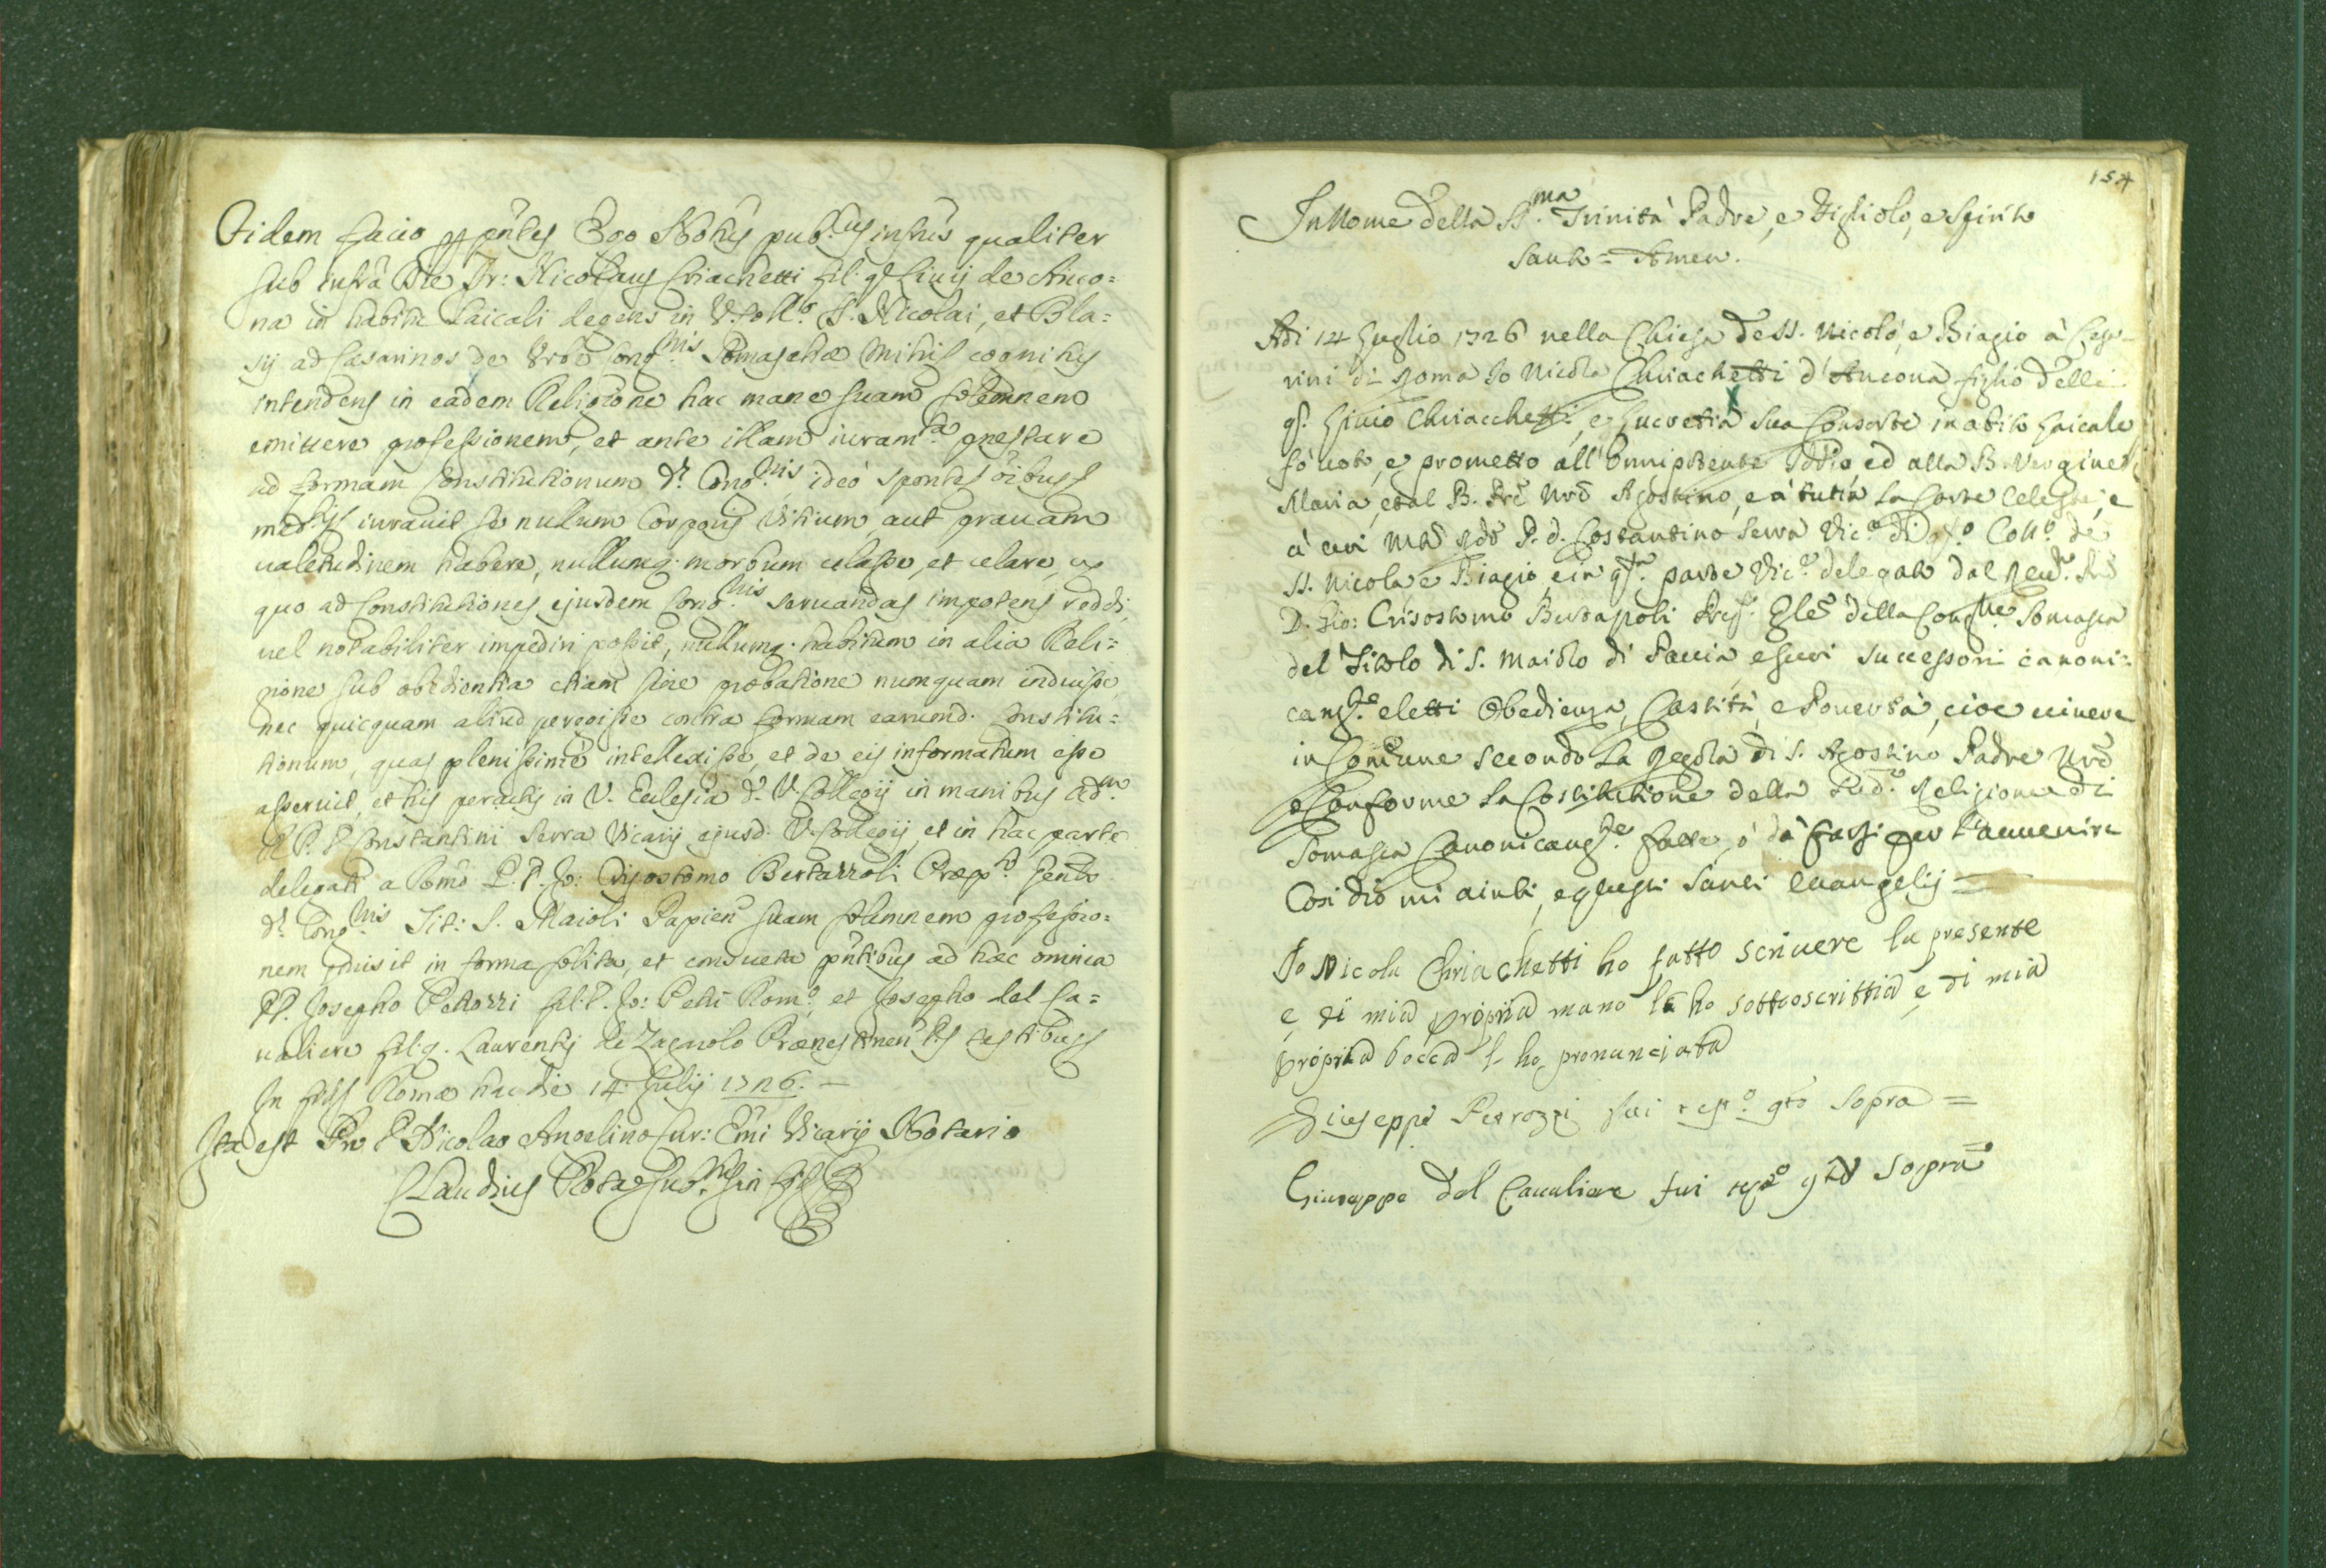 Fidem facio p pñtes Ego Notũs pub.cus infrũs qualiter
sub infra die Fr: Nicolaus Chiachetti fil: q. Livij de Anco=
na in habitu Laicali degens in V. Coll.o S. Nicolai, et Bla=
sij ad Cæsarinos de Urbe Cong.nis Somaschæ mihi cognitus
intendens in eadem Religione hac mane suam solemnem
emittere professionem, et ante illam iuram.ta præstare
ad formam Constitutionum d. Cong.nis, ideo sponte
iuravit se nullum Corporis vitium, aut gravam
valetudinem habere, nullumq. morbum celasse, et celare, ex
quo ad Constitutiones ejusdem Cong.nis servandas impotens reddi,
vel notabiliter impediri possit, nullumq. habitum in alia Reli=
gione sub obedientia etiam sine probatione numquam induisse,
nec quicquam aliud peregisse contra formam earumd. Constitu=
tionum, quas plenissimè intellexisse, et de eis informatum esse
asseruit, et his peractis in V. Ecclesia d. V. Collegij in manibus adm.
R. P. D. Constantini Serra Vicarij ejusd. V. Collegij, et in hac parte
delegati a P. D. Jo: Crisostomo Bertazzoli Præp.to Gen̄li
d. Cong.nis Tit: S. Maioli Papien suam solemnem professio=
nem emisit in forma solita, et consueta pñtibus ad hæc omnia
DD. Josepho Petrozzi fil: D. Jo: Petri Rom.o, et Josepho del Ca=
valiere fil: q. Laurentij de Zagarolo Prænestinen testibus
In fid. Romæ hac die 14. Julij 1726. —
Ita est Pro D. Nicolao Angelino Cur: Emi Vicarij Notario
Claudius Rota
154
In Nome della SS.ma Trinità Padre, e Figliolo, e Spirito
Santo = Amen.
Adi 14 Luglio 1726 nella Chiesa de SS. Nicolò, e Biagio à Cesa-
rini di Roma Io Nicola Chriachetti d'Ancona figlio delli
q. Livio Chriacchetti, e Lucretia sua Consorte in abito Laicale
fò voto, e prometto all'Onnipotente Iddio ed alla B. Vergine
Maria, et al B. Prē Nrō Agostino, e à tutta la Corte Celeste, e
à voi Mtō Rdō P. d. Costantino Serra Vic.o di q.to Coll.o de
SS. Nicola, e Biagio, e in q.ta parte Vic.o delegato dal Reu.mo Prē
D. Gio: Crisostomo Bertazoli Prep. Gle della Cong.ne Somasca
del Titolo di S. Maiolo di Pauia, e suoi successori canoni=
cam.te eletti Obedienza, Castità, e Pouertà, cioe viuere
in Comune secondo la Regola di S. Agostino Padre Nrō
e Conforme la Costitutione della Sud.a Religione di
Somasca Canonicam.te fatte, ò da farsi per l'auuenire
Così dio mi aiuti, e questi Santi Euangelij =
Io Nicola Chriachetti ho fatto scriuere la presente
e di mia propria mano la ho sottoscrittia e di mia
propria bocca l'ho pronunciata
Giuseppe Petrozzi fui test.o q.to sopra =
Giuseppe del Caualiere fui test.o q.to sopra =